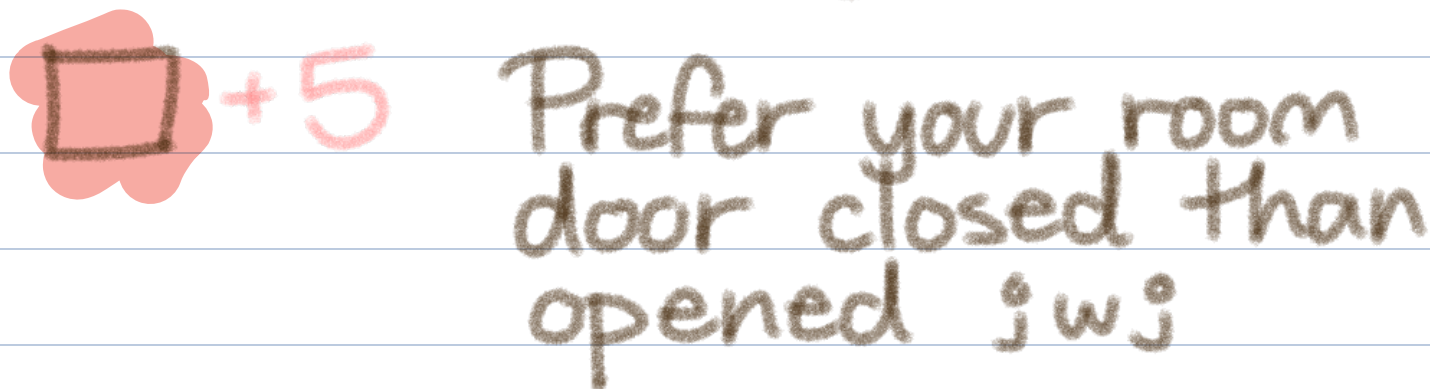 +5 Prefer your room
door closed than
opened jwj